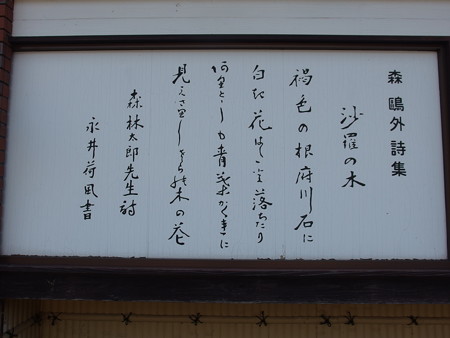 森鷗外詩集
沙羅の木
褐色の根府川石に
白き花はたと落ちたり
ありとしも青葉かくれに
見えさりしさらの木の花
森林太郎先生詩
永井荷風書